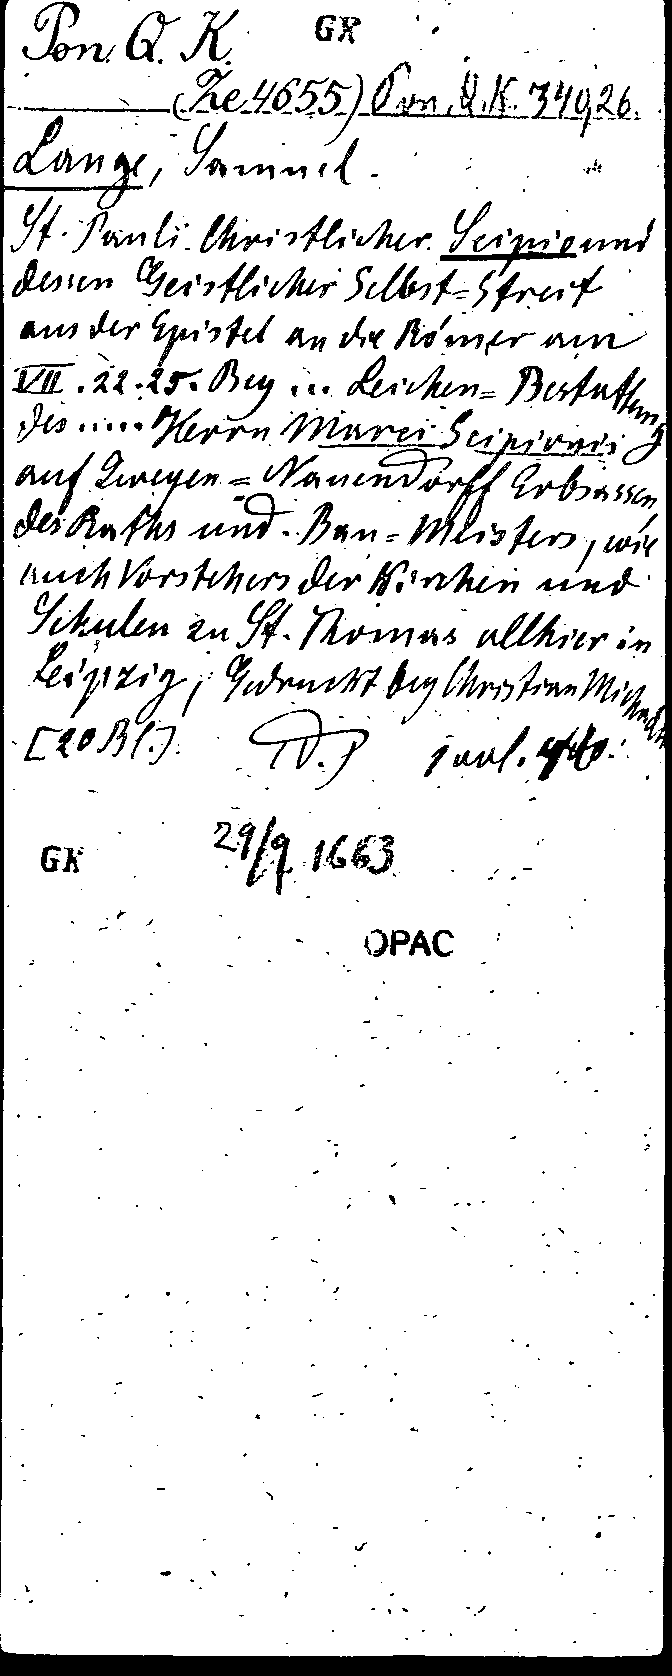 Pon. Q. K. GK
(Ze 4655) Pon. Q. K. 349,26.
Lange, Samuel.
St. Pauli Christlicher Scipio und
dessen Geistlicher Selbst=Streit
aus der Epistel an die Römer am
VII. 22-25. Bey ... Leichen=Bestattung
des .... Herrn Marci Scipionis
auf Zweyen=Nauendorff Erbsassen
des Raths und Bau=Meisters, wie
auch Vorstehers der Kirchen und
Schulen zu St. Thomas allhier in
Leipzig, Gedruckt bey Christian Michael
[20 Bl.].
GK 29/9 1663
OPAC